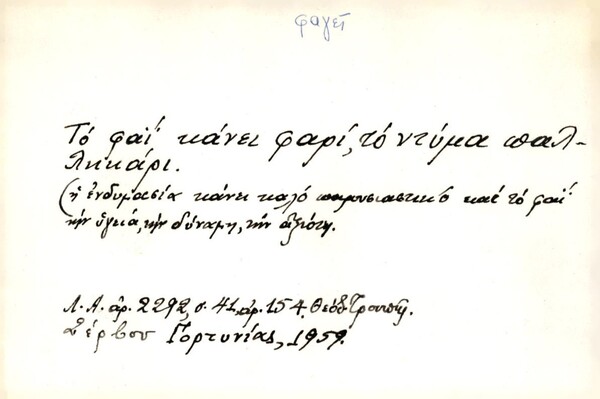 φαγεῖ
Τό φαΐ κάνει φαρί, τό ντύμα παλ-
ληκάρι.
(ἡ ἐνδυμασία κάνει καλό παρουσιαστικό καί τό φαΐ
τήν ὑγεία, τήν δύναμη, τήν ἀξιότη.
Λ.Α. ἀρ. 2292, σ. 41, ἀρ. 154, Θεόδ.
Σέρβου Γορτυνίας, 1959.